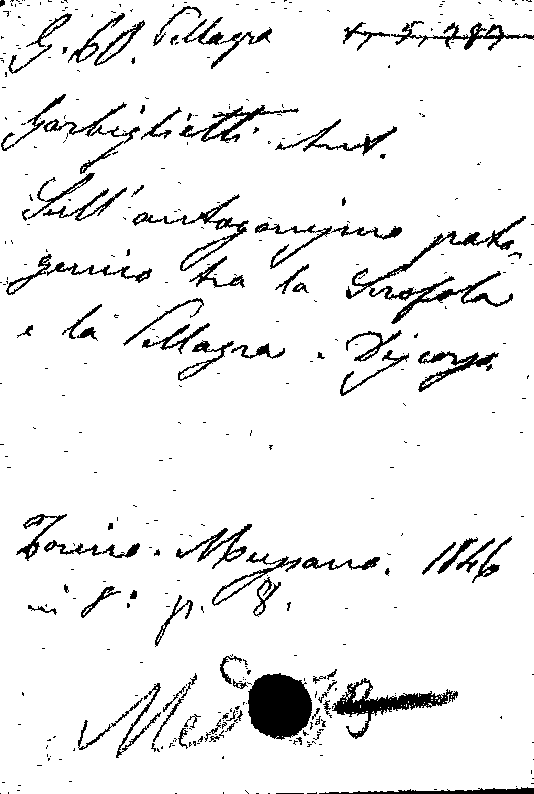 G. 60. Pellagra
Garbiglietti Ant.
Sull'antagonismo pato-
genico tra la Scrofola
e la Pellagra. Discorso
Torino. Mussano. 1846
in 8: p. 8.